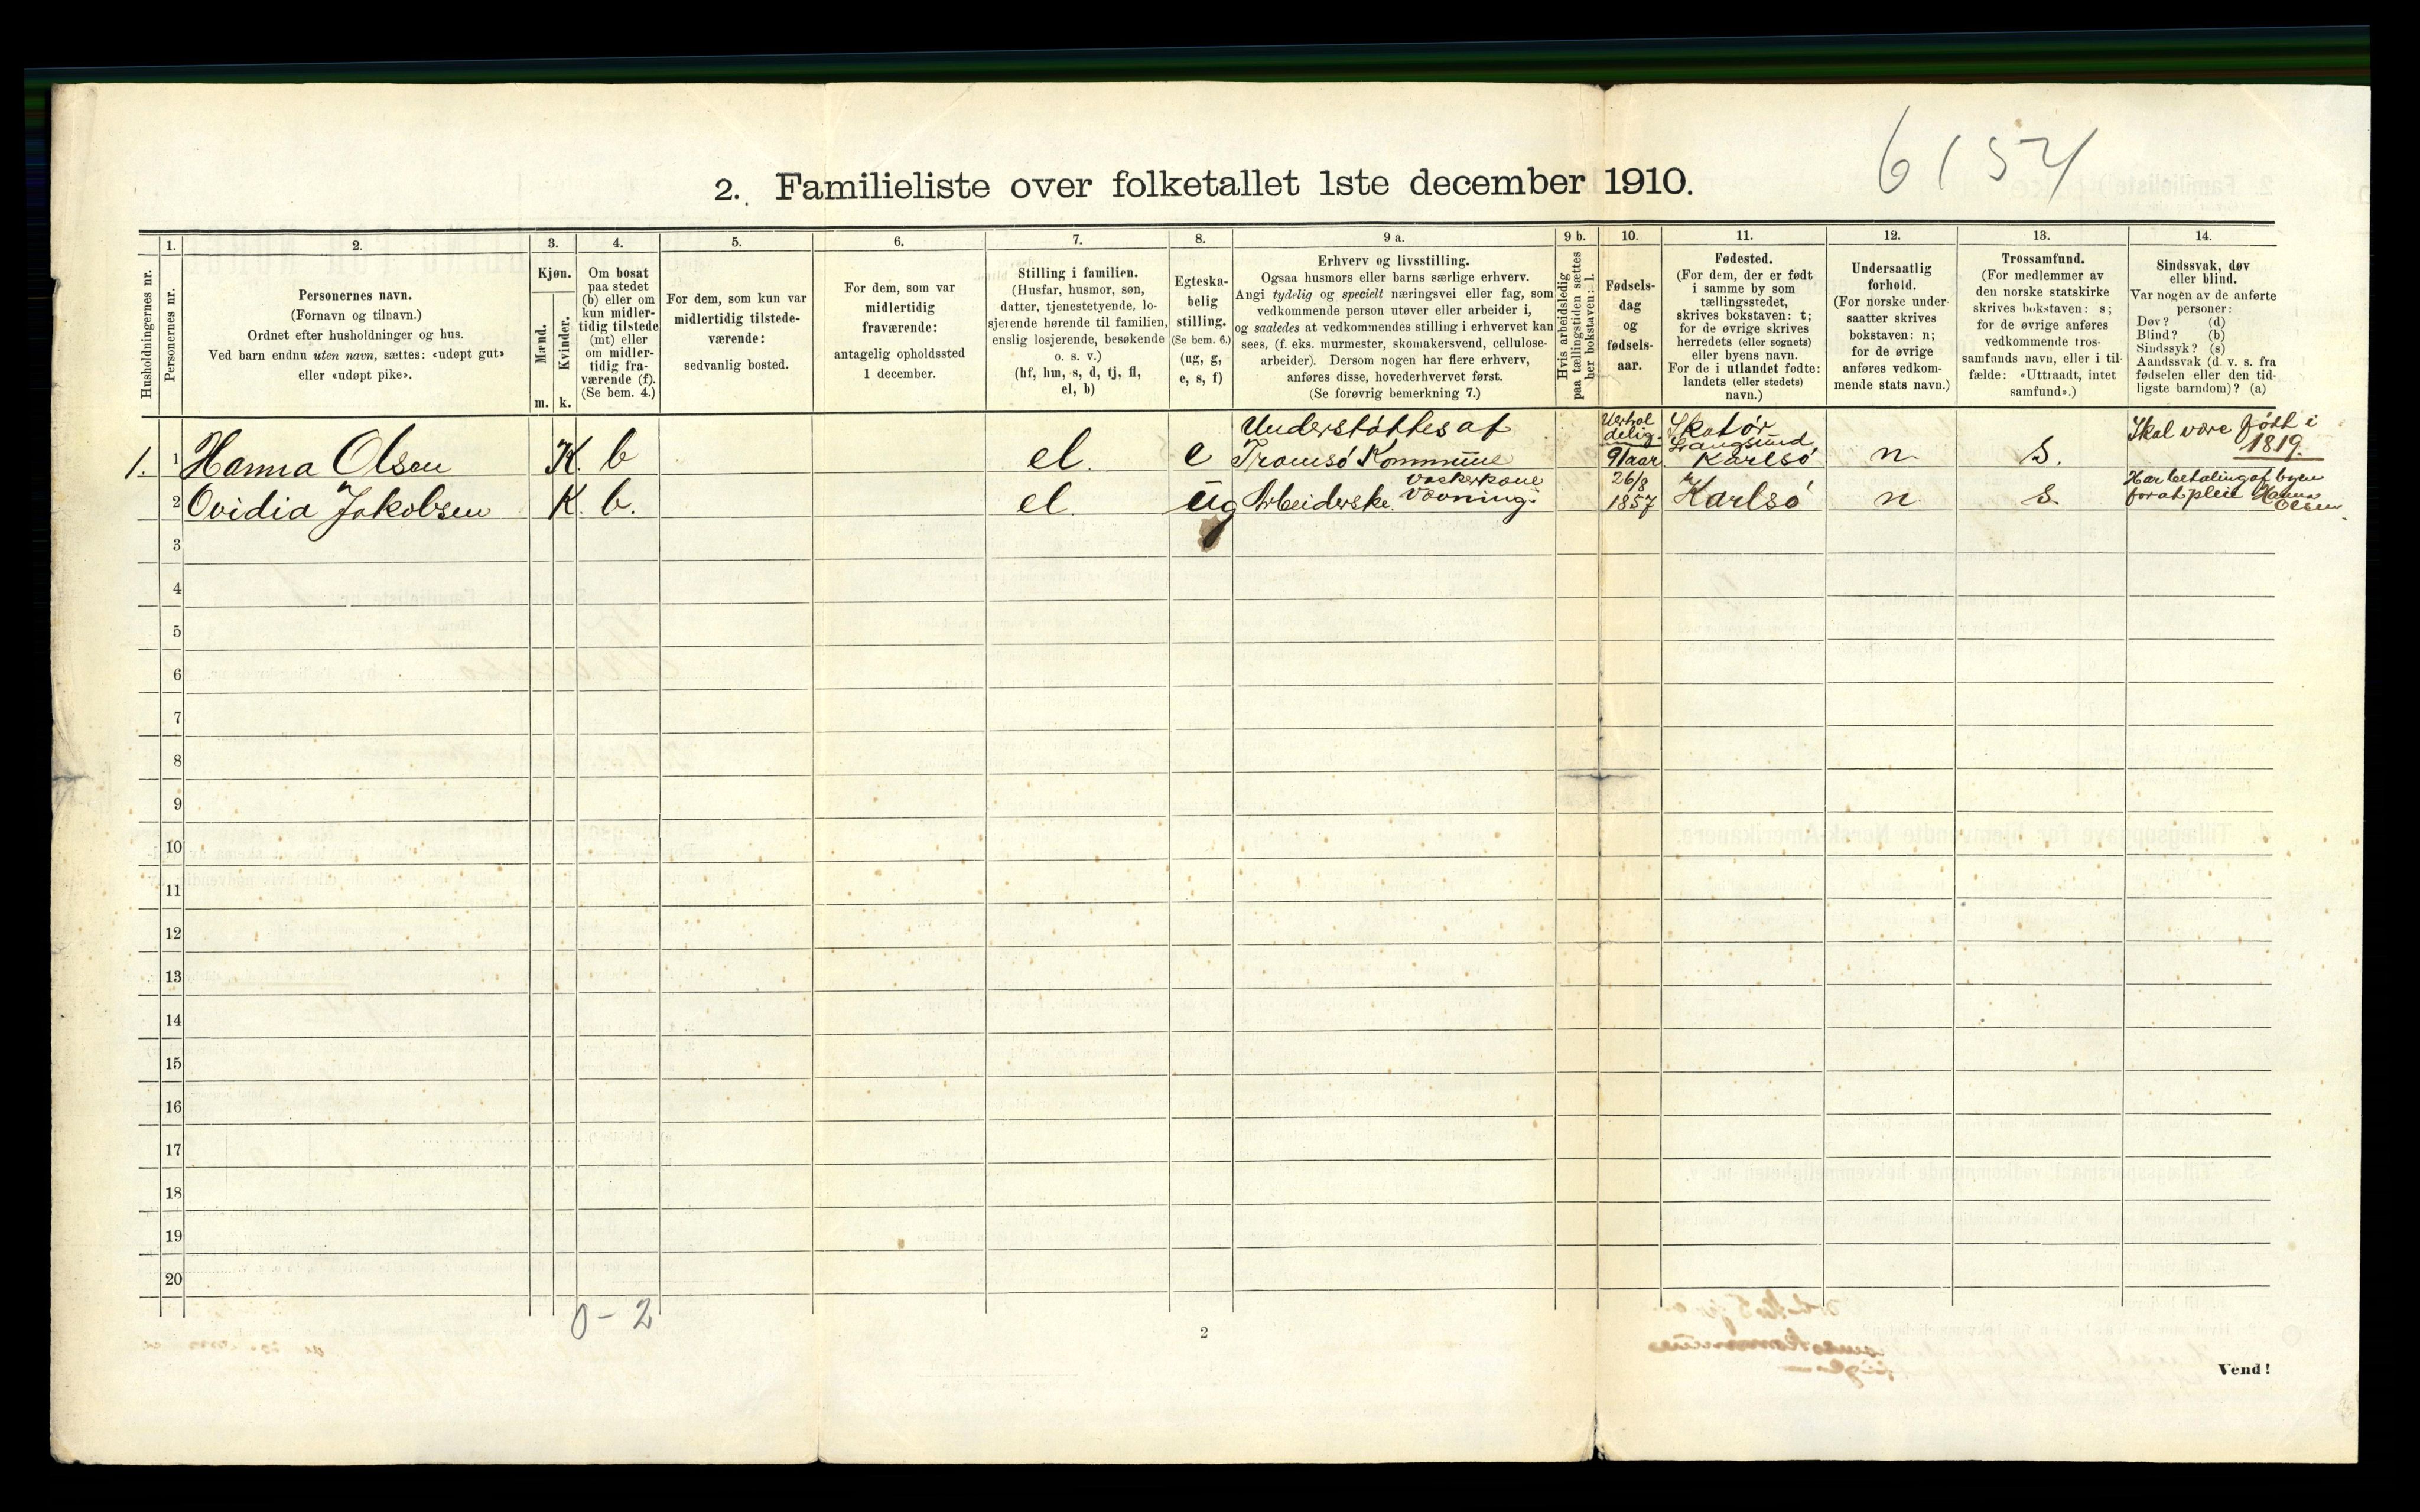 6154
2. Familieliste over folketallet 1ste december 1910.
Husholdningernes nr.
1.
Personernes nr.
2.
Personernes navn.
(Fornavn og tilnavn.)
Ordnet efter husholdninger og hus.
Ved barn endnu uten navn, sættes: «udøpt gut»
eller «udøpt pike».
3.
Kjøn.
Mænd.
Kvinder.
m. k.
4.
Om bosat
paa stedet
(b) eller om
kun midler-
tidig tilstede
(mt) eller
om midler-
tidig fra-
værende (f).
(Se bem. 4.)
5.
For dem, som kun var
midlertidig tilstede-
værende:
sedvanlig bosted.
6.
For dem, som var
midlertidig
fraværende:
antagelig opholdssted
1 december.
7.
Stilling i familien.
(Husfar, husmor, søn,
datter, tjenestetyende, lo-
sjerende hørende til familien,
enslig losjerende, besøkende
o. s. v.)
(hf, hm, s, d, tj, fl,
el, b)
8.
Egteska-
belig
stilling.
(Se bem. 6.)
(ug, g,
e, s, f)
9 a.
Erhverv og livsstilling.
Ogsaa husmors eller barns særlige erhverv.
Angi tydelig og specielt næringsvei eller fag, som
vedkommende person utøver eller arbeider i,
og saaledes at vedkommendes stilling i erhvervet kan
sees, (f. eks. murmester, skomakersvend, cellulose-
arbeider). Dersom nogen har flere erhverv,
anføres disse, hovederhvervet først.
(Se forøvrig bemerkning 7.)
9 b.
Hvis arbeidsledig
paa tællingstiden sættes
her bokstaven: l.
10.
Fødsels-
dag
og
fødsels-
aar.
11.
Fødested.
(For dem, der er født
i samme by som
tællingsstedet,
skrives bokstaven: t;
for de øvrige skrives
herredets (eller sognets)
eller byens navn.
For de i utlandet fødte:
landets (eller stedets)
navn.)
12.
Undersaatlig
forhold.
(For norske under-
saatter skrives
bokstaven: n;
for de øvrige
anføres vedkom-
mende stats navn.)
13.
Trossamfund.
(For medlemmer av
den norske statskirke
skrives bokstaven: s;
for de øvrige anføres
vedkommende tros-
samfunds navn, eller i til-
fælde: «Uttraadt, intet
samfund».)
14.
Sindssvak, døv
eller blind.
Var nogen av de anførte
personer:
Døv? (d)
Blind? (b)
Sindssyk? (s)
Aandssvak (d. v. s. fra
fødselen eller den tid-
ligste barndom)? (a)
1. 1 Hanna Olsen K. b el. e Understøttes af
Tromsø Kommune
91 aar
Langsund
Karlsø n. s. Skal være født i
1819.
2 Ovidia Jakobsen K. b. el ug Arbeiderske. Vaskerkone
Vævning. 26/8
1857 Karlsø n s. Har betaling af byen
for at pleie Hanna
Olsen.
3
4
5
6
7
8
9
10
11
12
13
14
15
16
17
18
19
20
0 - 2
2
Vend!